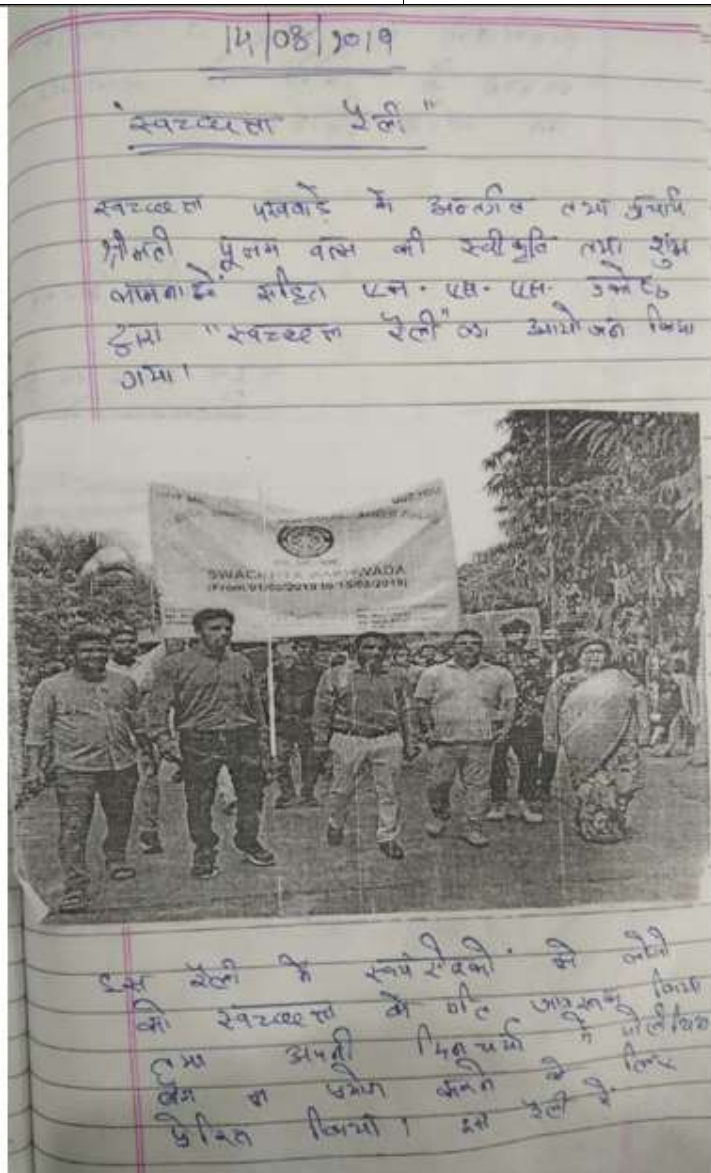 14/08/2019
"स्वच्छता रैली"
स्वच्छता पखवाड़े के अन्तर्गत तथा प्राचार्य
श्रीमती पूनम वत्स की स्वीकृति तथा शुभ
कामनाओं सहित एन. एस. एस.
द्वारा "स्वच्छता रैली" का आयोजन किया
गया।
SWACHHTA PAKHWADA
(From 01/08/2019 to 15/08/2019)
इस रैली में स्वयं सेवकों ने लोगों
को स्वच्छता के प्रति जागरूक किया
तथा अपनी दिनचर्या में पॉलीथिन
बैग न प्रयोग करने के लिए
प्रेरित किया। इस रैली में